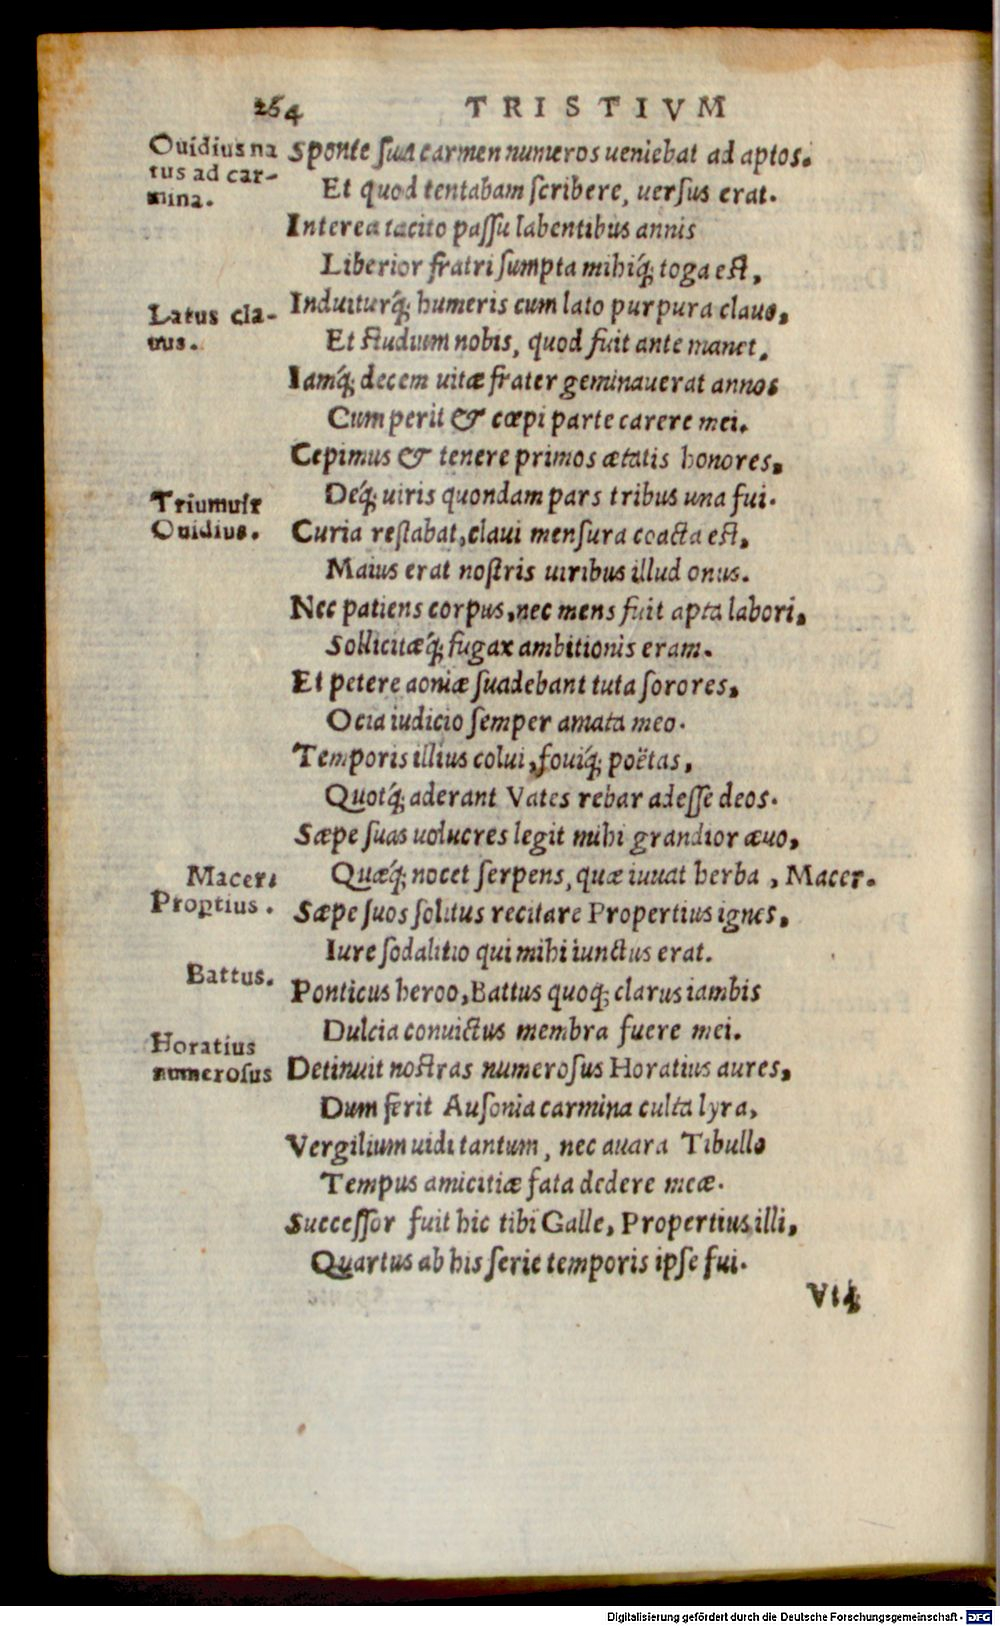 264 TRISTIVM
Ouidius na
tus ad car-
mina.
Sponte sua carmen numeros ueniebat ad aptos.
Et quod tentabam scribere, uersus erat.
Interea tacito passu labentibus annis
Liberior fratri sumpta mihiq́; toga est,
Latus cla-
uus.
Induiturq́; humeris cum lato purpura clauo,
Et studium nobis, quod fuit ante manet.
Iamq́; decem uitæ frater geminauerat annos
Cum perit & cœpi parte carere mei.
Cepimus & tenere primos ætatis honores,
Triumuir
Ouidius.
Deq́; uiris quondam pars tribus una fui.
Curia restabat, claui mensura coacta est,
Maius erat nostris uiribus illud onus.
Nec patiens corpus, nec mens fuit apta labori,
Sollicitæq́; fugax ambitionis eram.
Et petere aoniæ suadebant tuta sorores,
Ocia iudicio semper amata meo.
Temporis illius colui, fouiq́; poëtas,
Quotq́; aderant Vates rebar adesse deos.
Sæpe suas uolucres legit mihi grandior æuo,
Macer.
Quæq́; nocet serpens, quæ iuuat herba, Macer.
Proptius.
Sæpe suos solitus recitare Propertius ignes,
Iure sodalitio qui mihi iunctus erat.
Battus.
Ponticus heroo, Battus quoq; clarus iambis
Dulcia conuictus membra fuere mei.
Horatius
numerosus
Detinuit nostras numerosus Horatius aures,
Dum ferit Ausonia carmina culta lyra,
Vergilium uidi tantum, nec auara Tibullo
Tempus amicitiæ fata dedere meæ.
Successor fuit hic tibi Galle, Propertius illi,
Quartus ab his serie temporis ipse fui.
Vtq́;
Digitalisierung gefördert durch die Deutsche Forschungsgemeinschaft - DFG